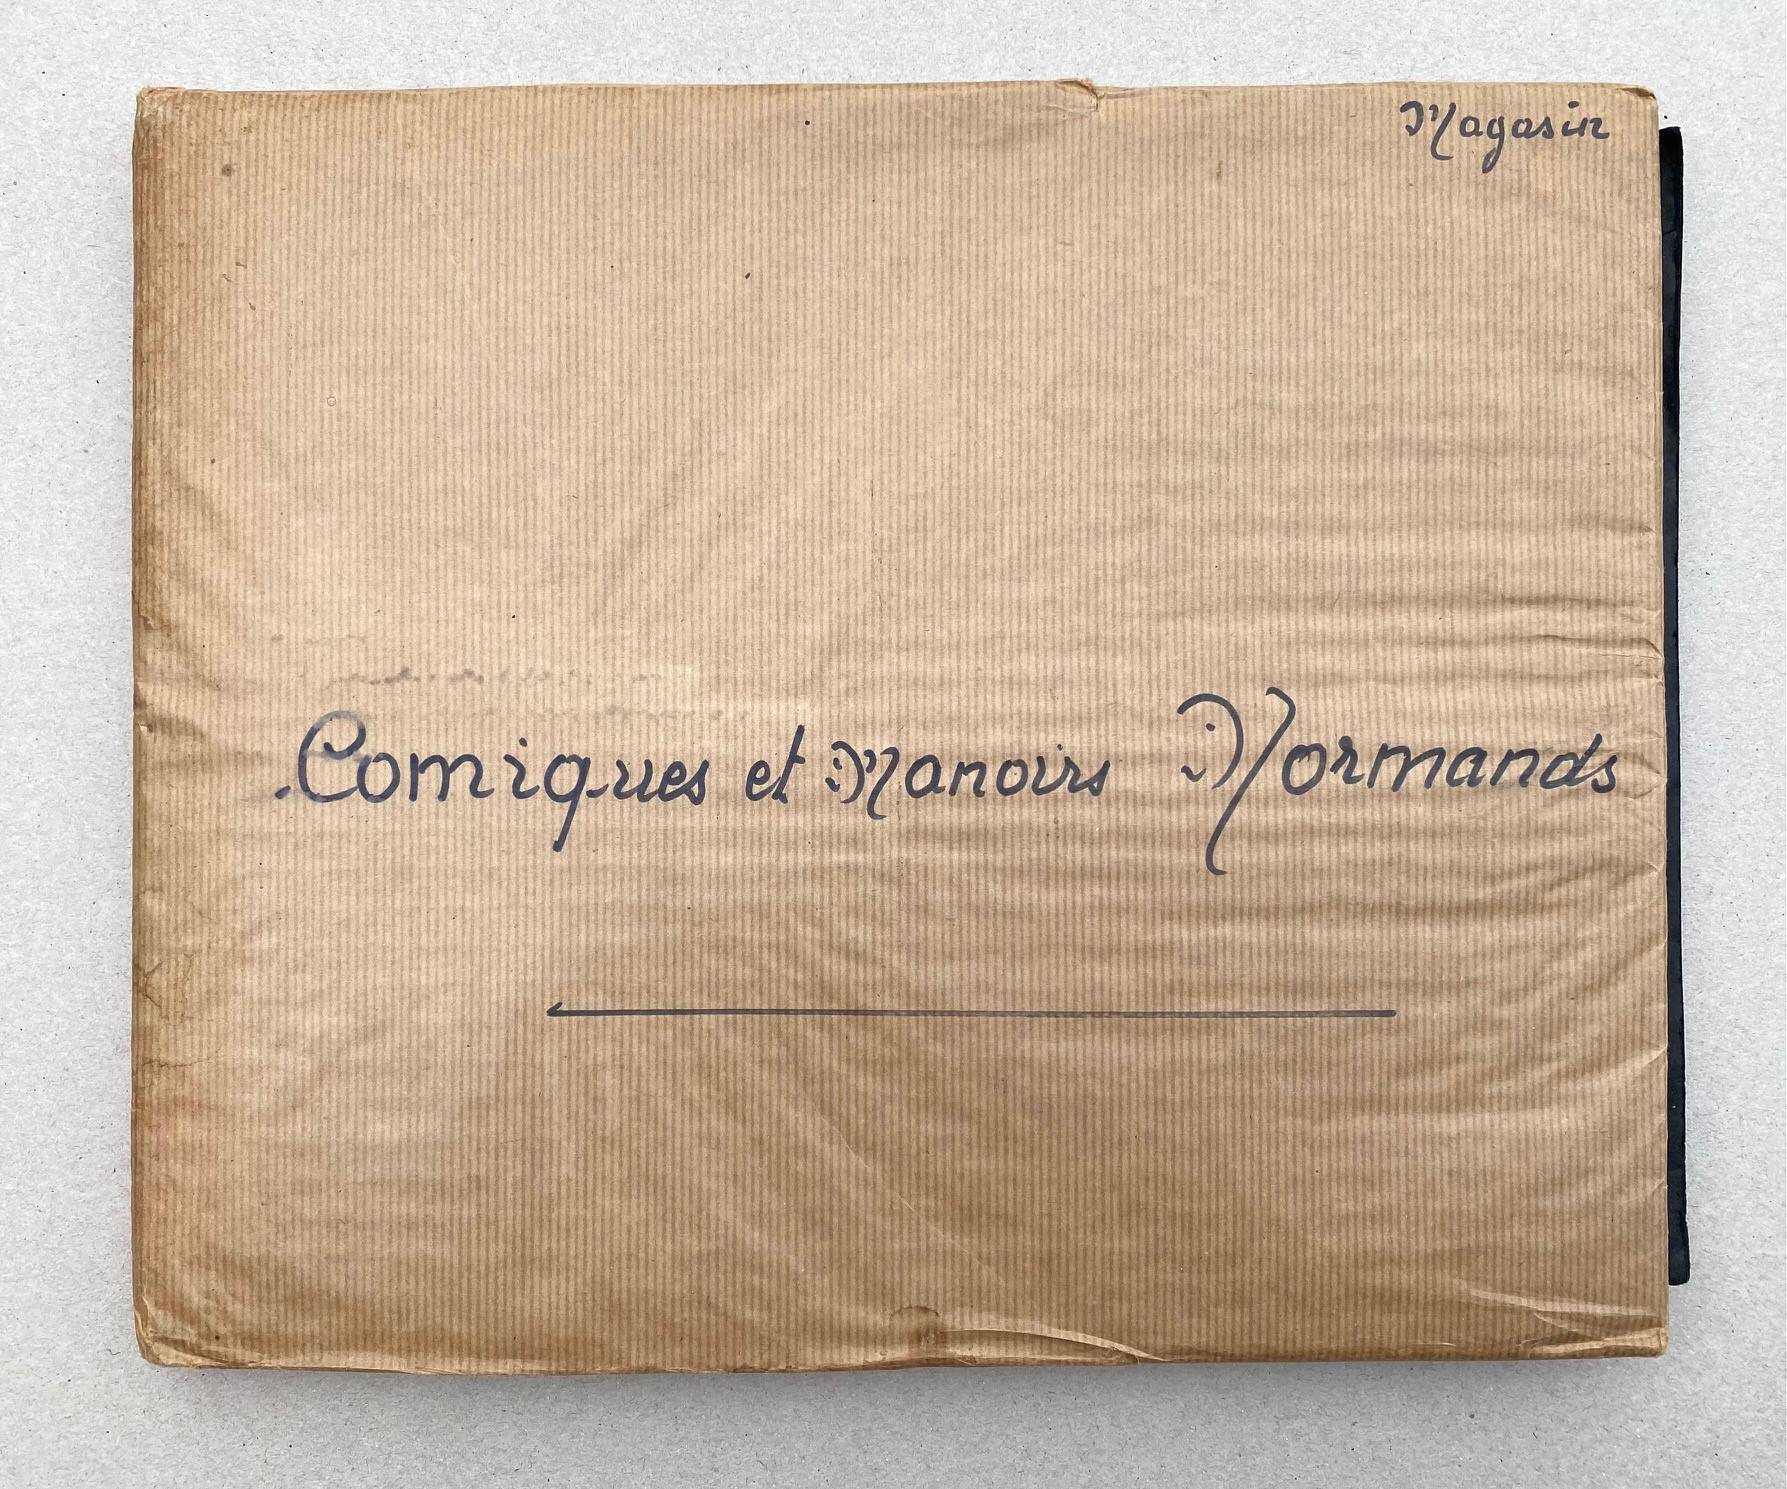 Magasin
Comiques et Manoirs Normands